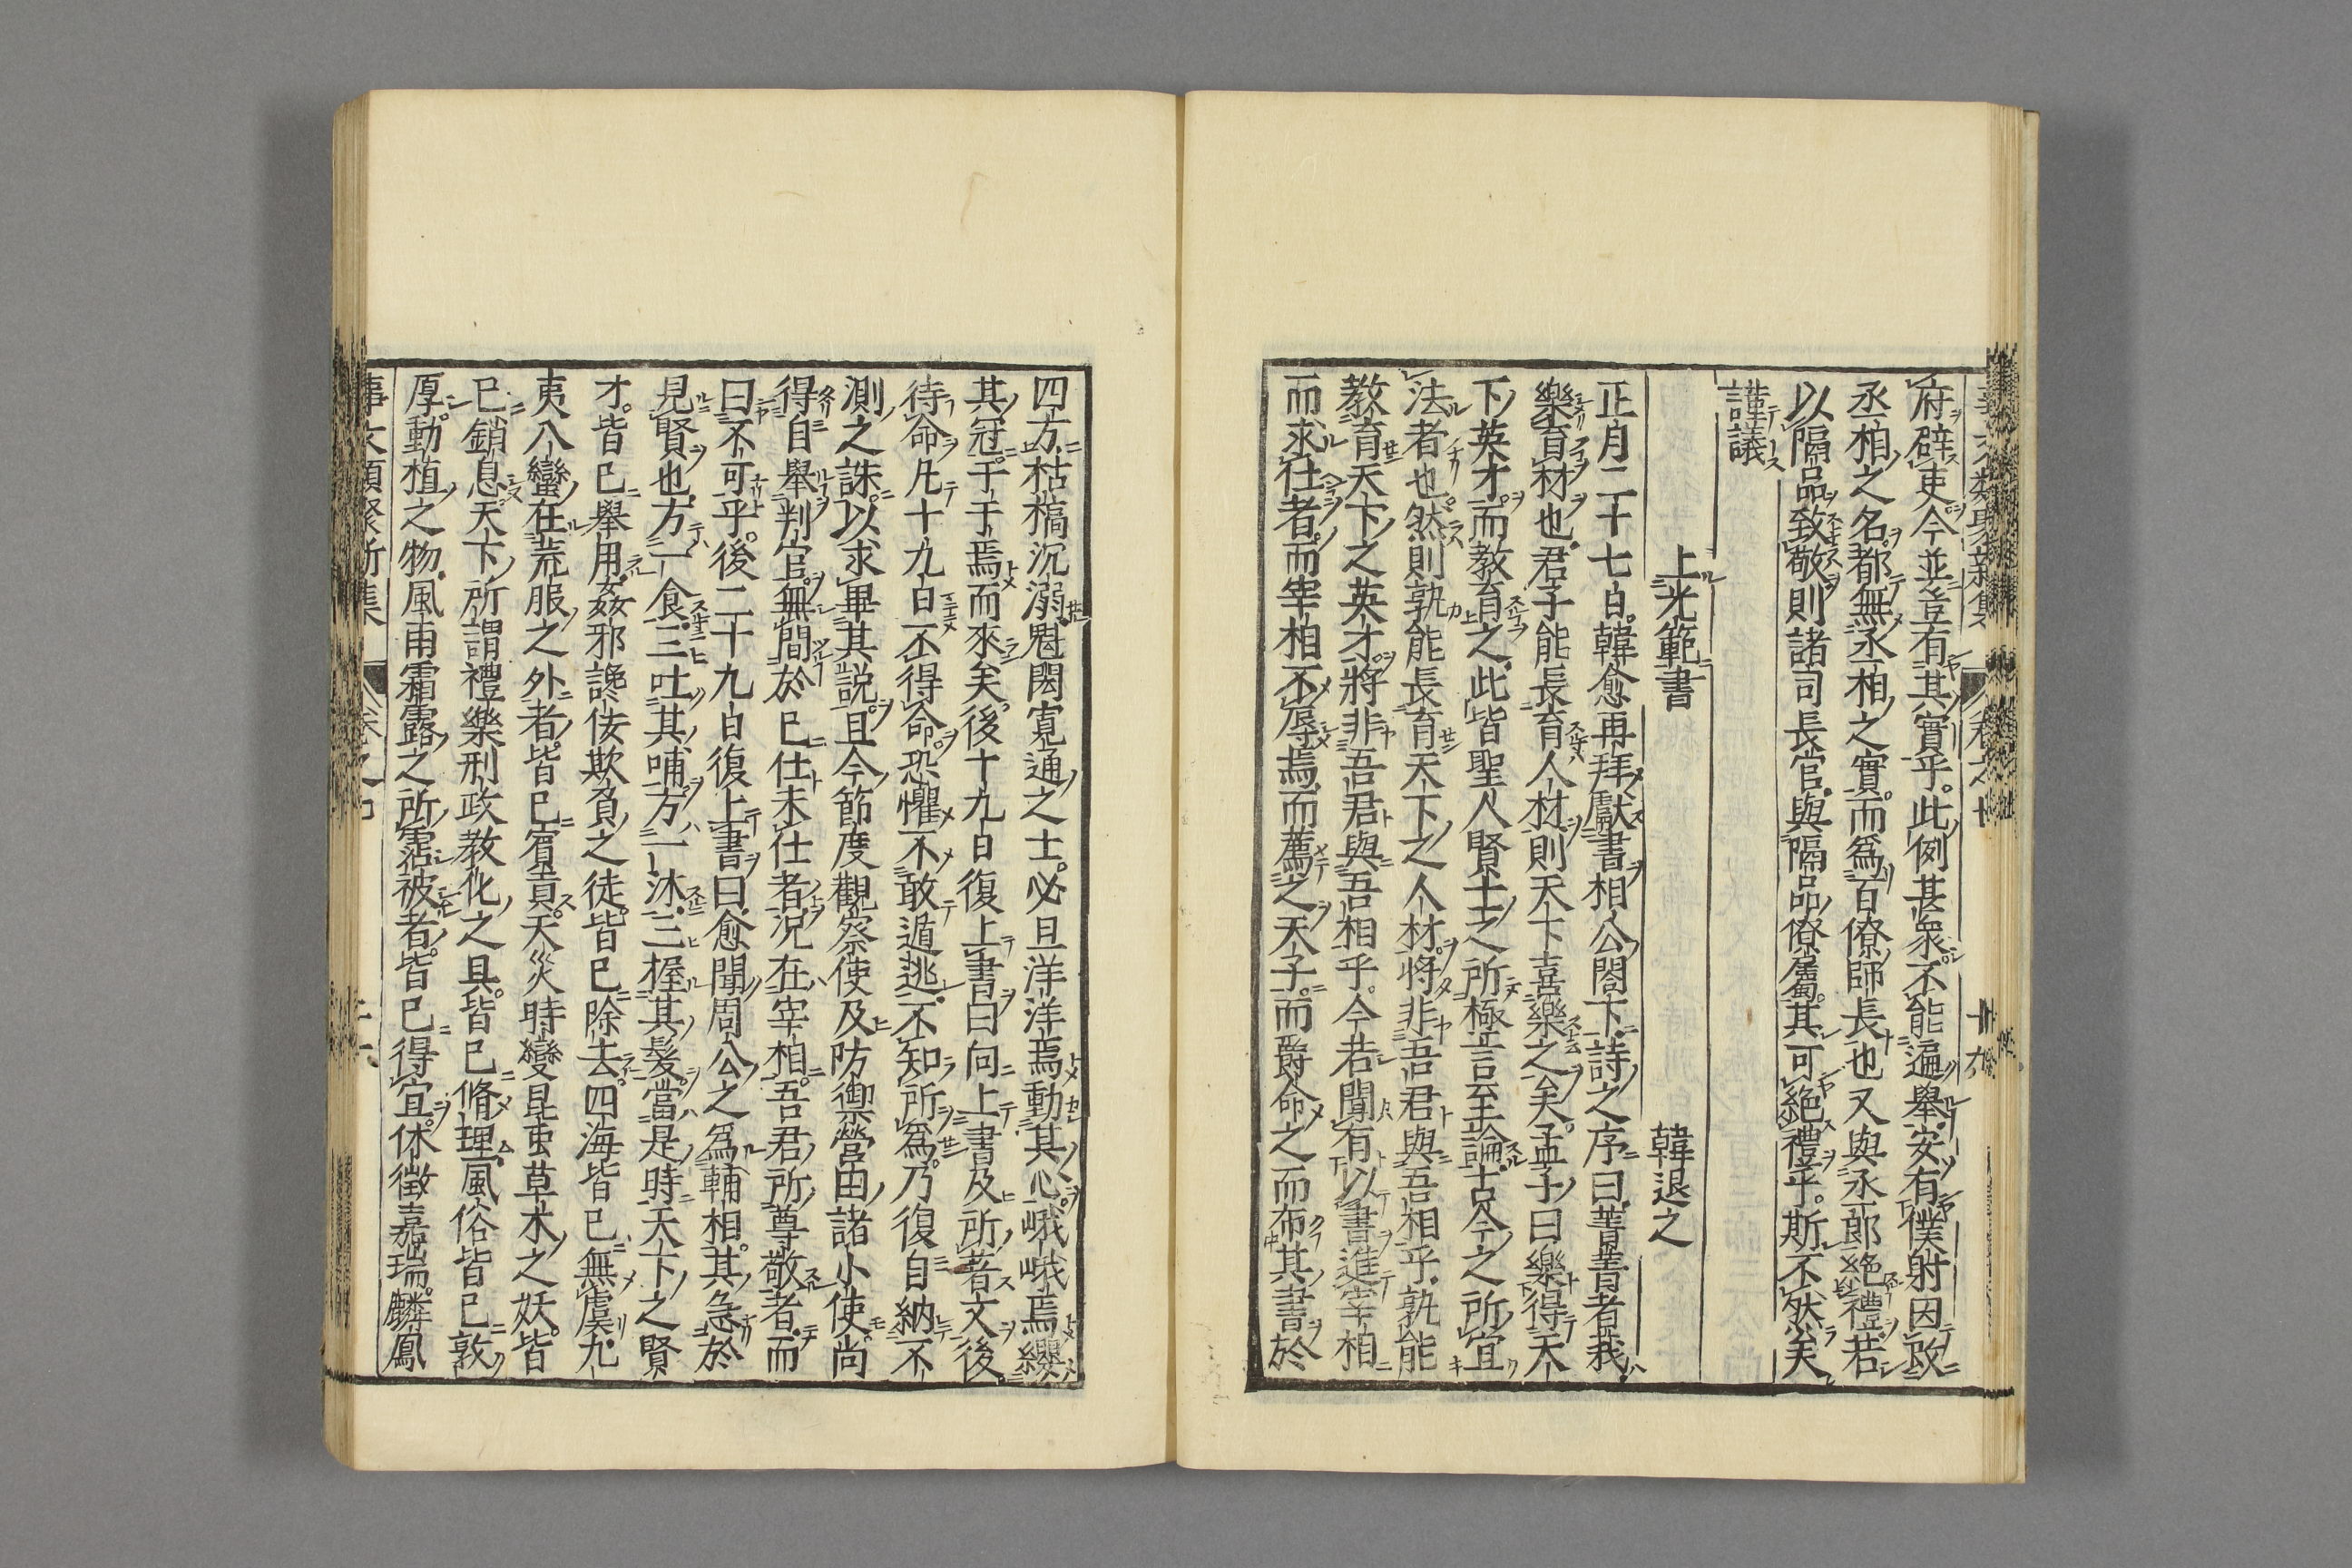 府辟吏今並豈有其實乎此例甚衆不能遍舉安有僕射因改
丞相之名都無丞相之實而爲百僚師長也又與丞郎絕禮若
以隔品致敬則諸司長官與隔品僚屬其可絕禮乎斯不然矣
謹議
上光範書 韓退之
正月二十七日韓愈再拜獻書相公閤下詩之序曰菁菁者莪
樂育材也君子能長育人材則天下喜樂之矣孟子曰樂得天
下英才而教育之此皆聖人賢士之所極言至論古今之所宜
法者也然則孰能長育天下之人材將非吾君與吾相乎孰能
教育天下之英才將非吾君與吾相乎今若聞有以書進宰相
而求仕者而宰相不辱焉而薦之天子而爵命之而布其書於
四方枯槁沉溺魁閎寬通之士必旦洋洋焉動其心峨峨焉纓
其冠于于焉而來矣後十九日復上書曰向上書及所著文後
待命凡十九日不得命恐懼不敢遁逃不知所爲乃復自納不
測之誅以求畢其説且今節度觀察使及防禦營田諸小使尚
得自舉判官無間於已仕未仕者況在宰相吾君所尊敬者而
曰不可乎後二十九日復上書曰愈聞周公之爲輔相其急於
見賢也方一食三吐其哺方一沐三握其髮當是時天下之賢
才皆已舉用姦邪讒佞欺負之徒皆已除去四海皆已無虞九
夷八蠻在荒服之外者皆已賓貢天災時變昆虫草木之妖皆
已銷息天下所謂禮樂刑政教化之具皆已脩理風俗皆已敦
厚動植之物風雨霜露之所霑被者皆已得宜休徵嘉瑞麟鳳